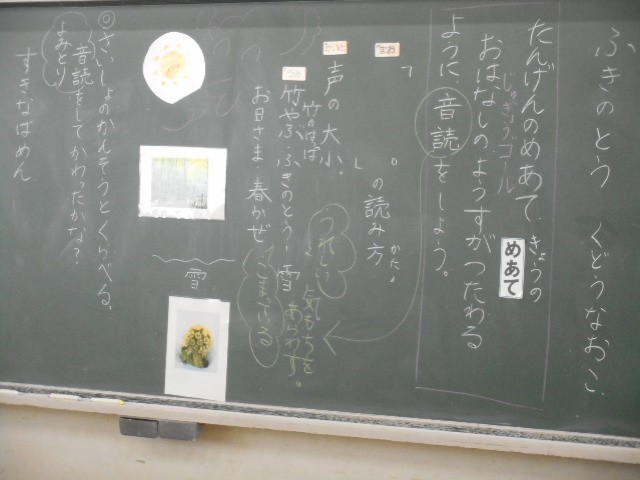 ふきのとう　くどうなおこ
たんげんのめあて、きょうの
めあて
じゅぎょうのゴール
おはなしのようすがつたわる
ように、音読をしよう。
「　」の読み方。
声の大小。
竹のはっぱ
竹やぶ・ふきのとう・雪
お日さま　春かぜ
うれしい
こまってる
気もちを
あらわす。
雪
◎さいしょのかんそうとくらべる。
音読をしてかわったかな？
よみとり
すきなばめん